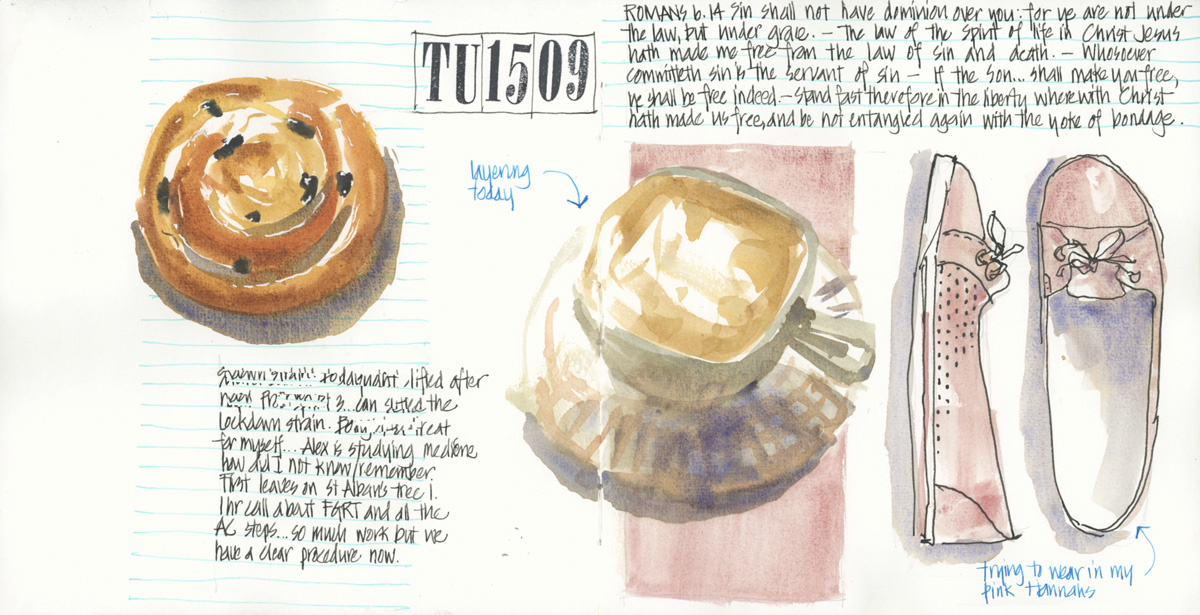 TU 15 09
ROMANS 6.14 Sin shall not have dominion over you: for ye are not under
the law, but under grace. — The law of the Spirit of life in Christ Jesus
hath made me free from the law of sin and death. — Whosoever
committeth sin is the servant of sin — If the Son... shall make you free,
ye shall be free indeed. — Stand fast therefore in the liberty wherewith Christ
hath made us free, and be not entangled again with the yoke of bondage.
layering
today
lifted after
3... can the
lockdown strain. treat
for myself... Alex is studying medicine
how did I not know/remember.
First leaves on St Alban's tree 1.
1 hr call about F&RT and all the
AC steps... so much work but we
have a clear procedure now.
trying to wear in my
pink Hannahs